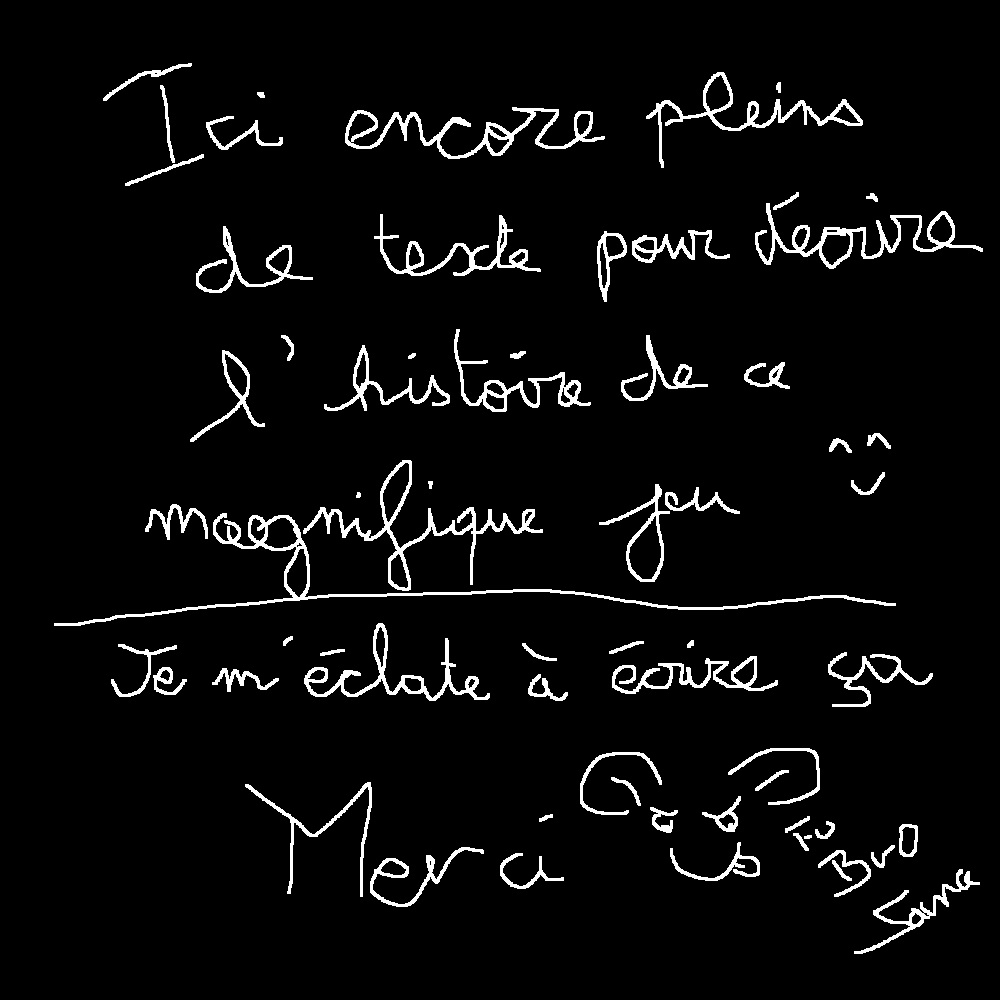 Ici encore pleins
de texte pour décrire
l'histoire de ce
magnifique jeu
Je m'éclate à écrire ça
Merci
Bro